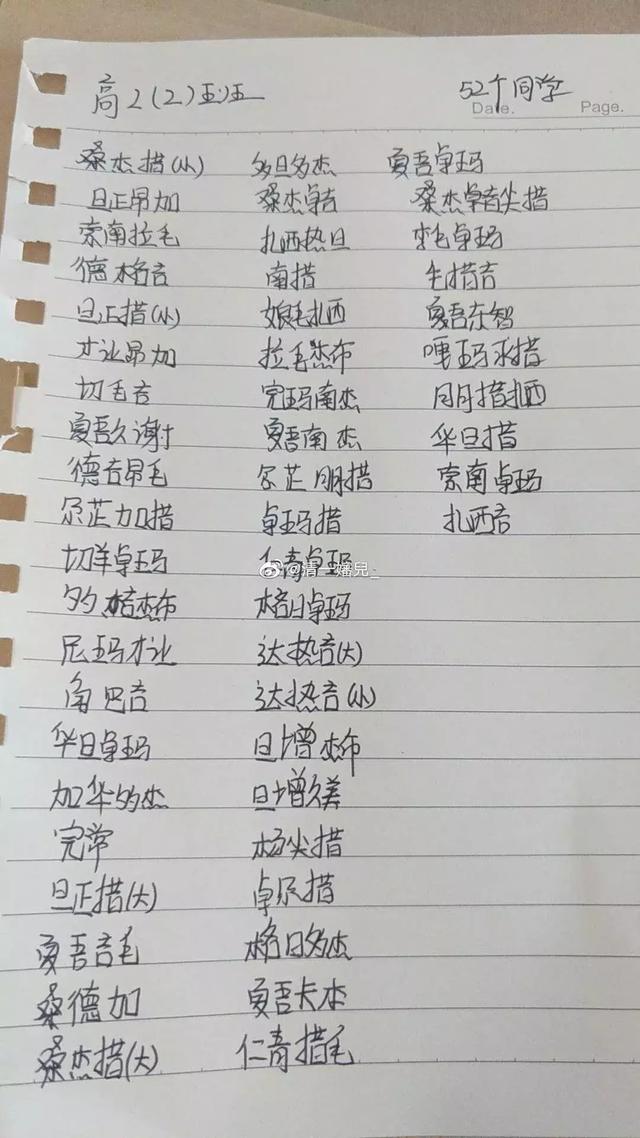 高2(2)班 52个同学
Date. Page.
桑杰措(小) 多旦多杰 夏吾卓玛
旦正昂加 桑杰卓吉 桑杰卓吉尖措
索南拉毛 扎西热旦 李毛卓玛
德格吉 南措 毛措吉
旦正措(小) 娘毛扎西 夏吾东智
才让昂加 拉毛杰布 嘎玛才措
切毛吉 完玛南杰 同月措扎西
夏吾久谢 夏吾南杰 华旦措
德吉昂毛 尕芷朋措 索南卓玛
尕芷加措 卓玛措 扎西吉
切羊卓玛 仁青卓玛
@清一嬸兒_
多杰布 格日卓玛
尼玛才让 达热吉(大)
角巴吉 达热吉(小)
华旦卓玛 旦增杰布
加华多杰 旦增久美
完常 杨尖措
旦正措(大) 卓尕措
夏吾吉毛 格日多杰
桑德加 夏吾卡本
桑杰措(大) 仁青措毛